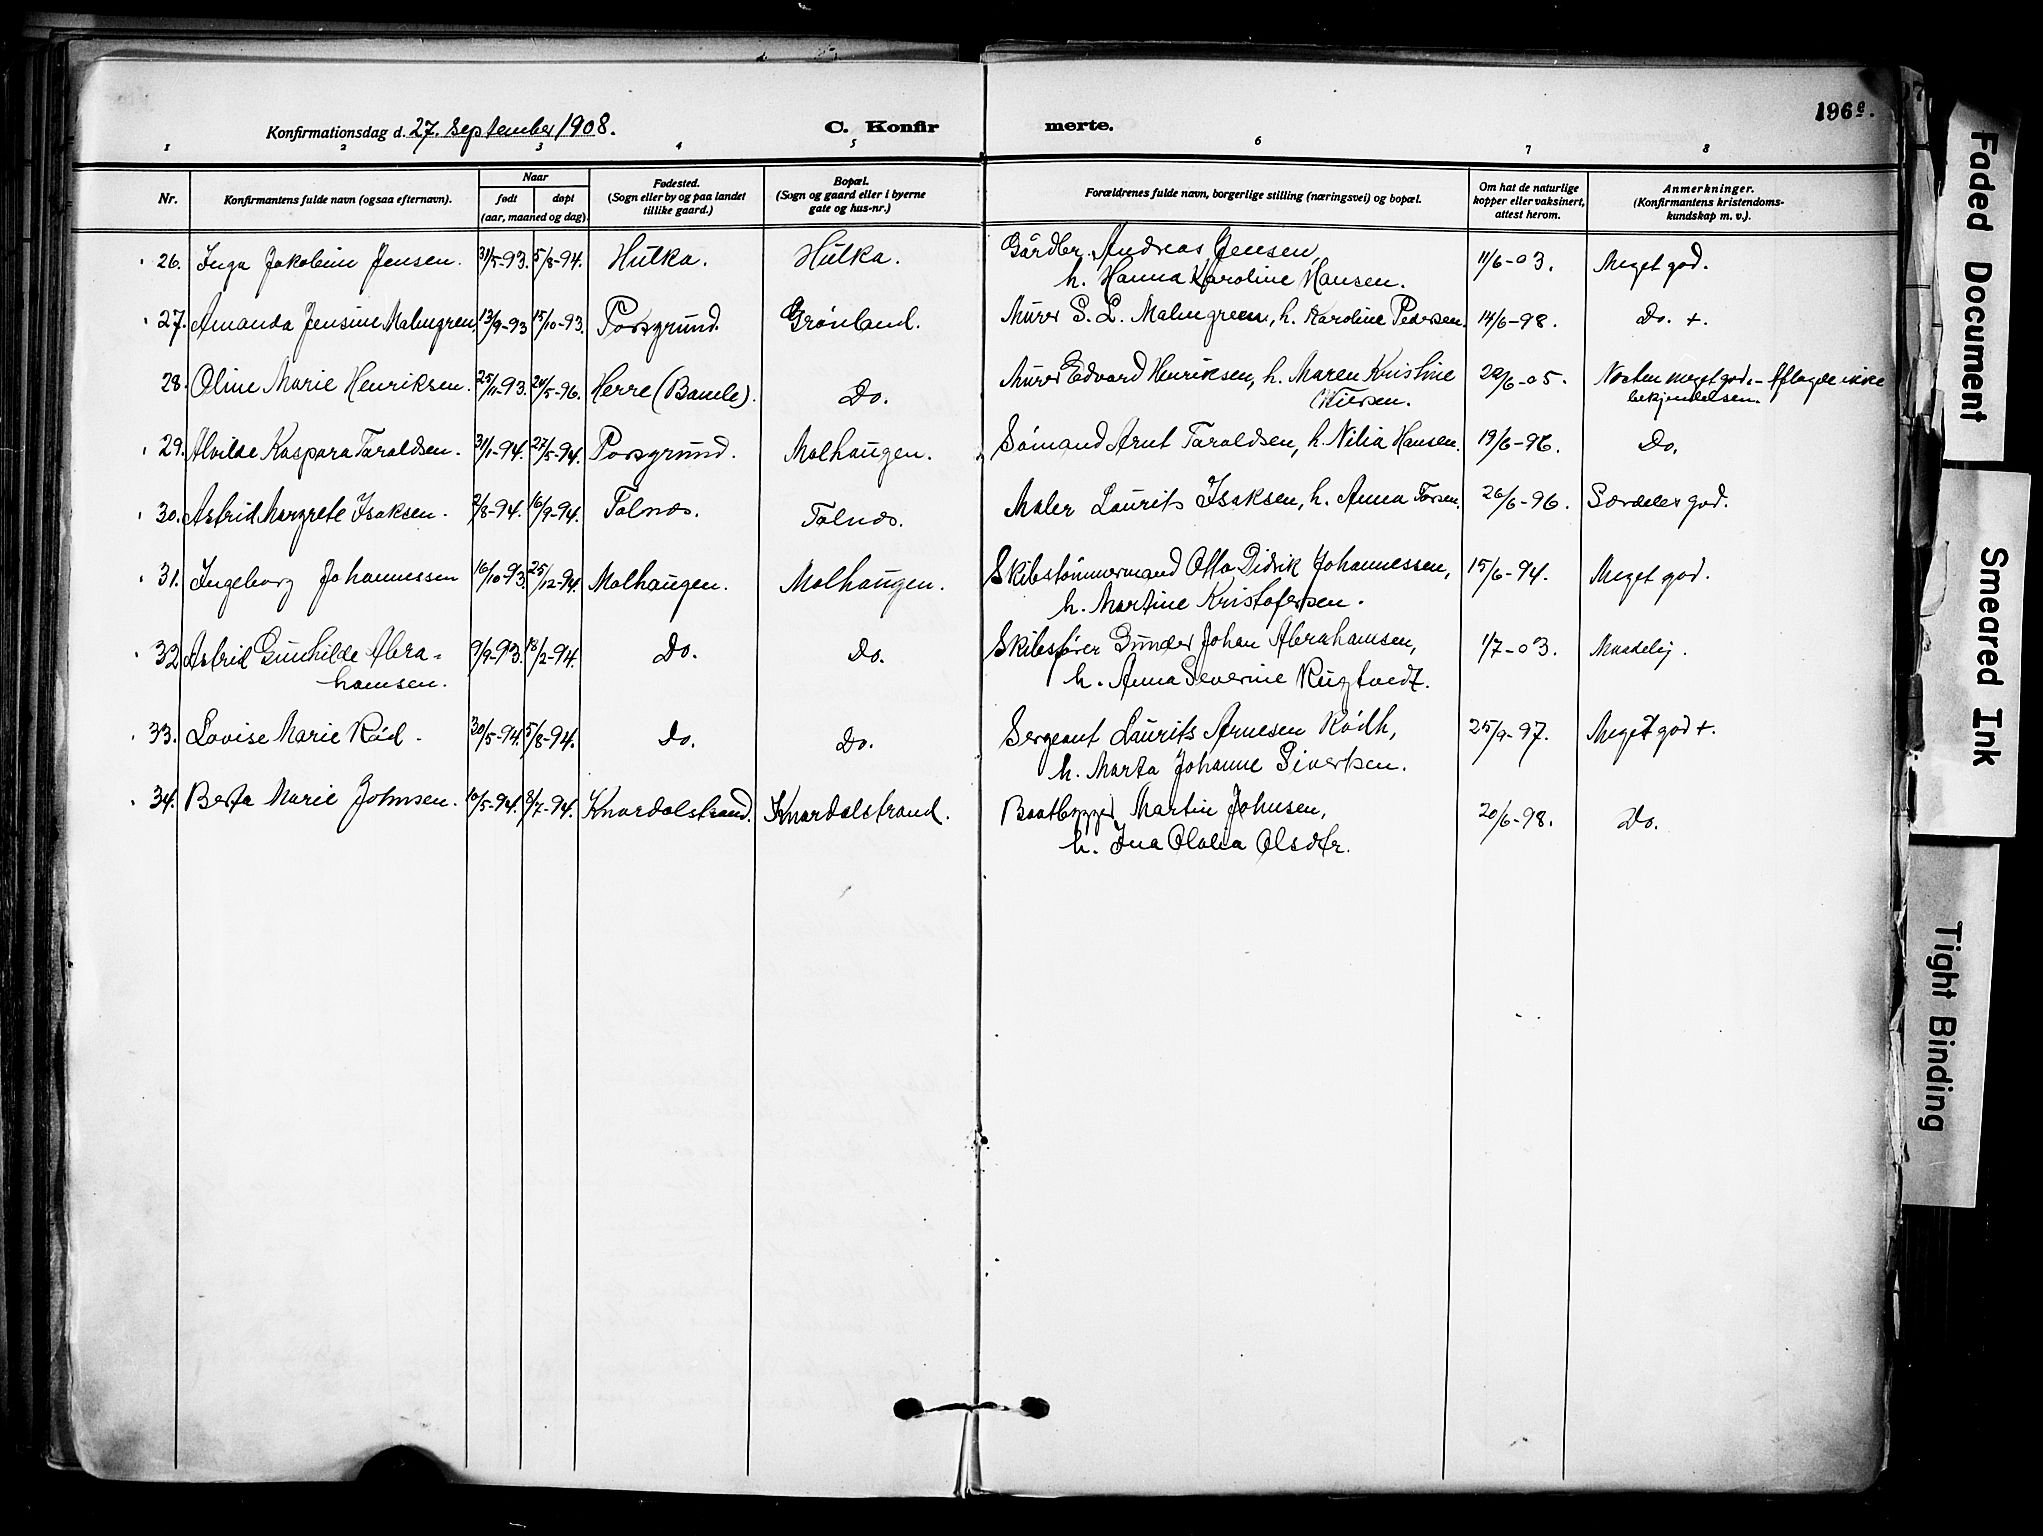 Konfirmationsdag d. 27. September 1908.
C. Konfirmerte.
196 e.
1 2 3 4 5 6 7 8
Nr.
Konfirmantens fulde navn (ogsaa efternavn).
Naar
født døpt
(aar, maaned og dag).
Fødested.
(Sogn eller by og paa landet
tillike gaard.)
Bopæl.
(Sogn og gaard eller i byerne
gate og hus-nr.)
Forældrenes fulde navn, borgerlige stilling (næringsvei) og bopæl.
Om hat de naturlige
kopper eller vaksinert,
attest herom.
Anmerkninger.
(Konfirmantens kristendoms-
kundskap m. v.).
26. Inga Jakobine Jensen. 31/5-93. 5/8-94. Hulka. Hulka. Gårdbr. Andreas Jensen, 11/6-03. Meget god.
h. Hanna Karoline Hansen.
27. Amanda Jensine Malmgren 13/9-93 15/10-93. Porsgrund. Grønland. Murer S. L. Malmgreen, h. Karoline Pedersen. 14/6-98. Do. +.
28. Oline Marie Henriksen. 25/11-93. 24/5-96. Herre (Bamle). Do. Murer Edvard Henriksen, h. Maren Kristine 22/6-05. Næsten meget god. - Aflagde ikke
bekjendelsen.
29. Alvilde Kaspara Taraldsen. 31/1-94. 27/5-94. Porsgrund. Malhaugen. Sømand Arnt Taraldsen, h. Nilia Hansen. 19/6-96. Do.
30. Astrid Margrete Isaksen. 2/8-94. 16/9-94. Talnæs. Tolnæs. Maler Laurits Isaksen, h. Anna Torsen. 26/6-96. Særdeles god.
31. Ingeborg Johannessen 16/10-93. 25/12-94. Malhaugen. Malhaugen. Skibstømmermand Otto Didrik Johannessen, 15/6-94. Meget god.
h. Martine Kristofersen.
32 Astrid Gunhilde Abra- 9/9-93. 18/2-94. Do. Do. Skibsfører Gunder Johan Abrahamsen, 1/7-03. Maadelig.
hamsen. h. Anna Severine Rugtvedt.
33. Lovise Marie Rød. 30/5-94. 5/8-94. Do. Do. Sergeant Laurits Arnesen Rødh, 25/9-97. Meget god +.
h. Marta Johanne Sivertsen.
34. Berta Marie Johnsen. 10/5-94. 8/7-94. Knardalstrand. Knardalstrand. Baatbygger Martin Johnsen, 20/6-98. Do.
h. Ina Olava Olsdtr.
Faded Document
Smeared Ink
Tight Binding